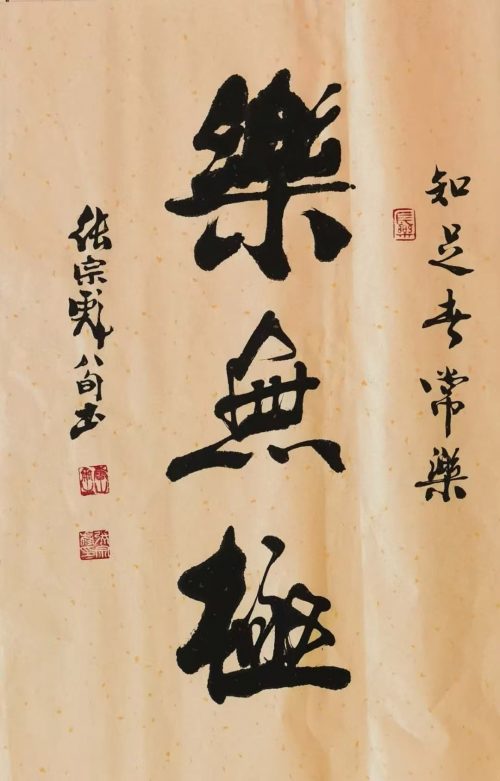 知足者常樂
樂無極
張宗彪八旬书